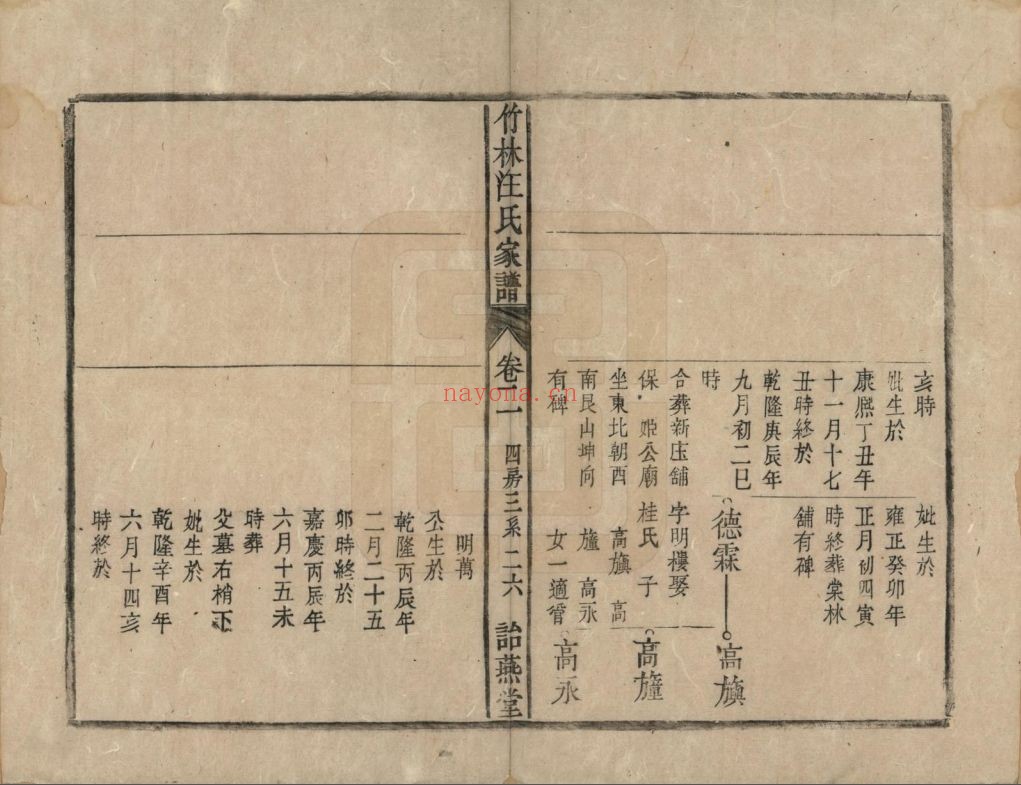 亥時
妣生於
康熈丁丑年
十一月十七
丑時終於
乾隆庚辰年
九月初二巳
時
合葬新庄舖
保 姫公廟
坐東北朝酉
南艮山坤向
有碑
妣生於
雍正癸卯年
正月初四寅
時終葬棠林
舖有碑
德霖
字明樓娶
桂氏 子
高旗 高
㫼 高永
女一適管
高旗
高㫼
高永
竹林汪氏家譜
卷二 四房三系二六 詒燕堂
明萬
公生於
乾隆丙辰年
二月二十五
卯時終於
嘉慶丙辰年
六月十五未
時葬
父墓右梢下
妣生於
乾隆辛酉年
六月十四亥
時終於
nayona.cn